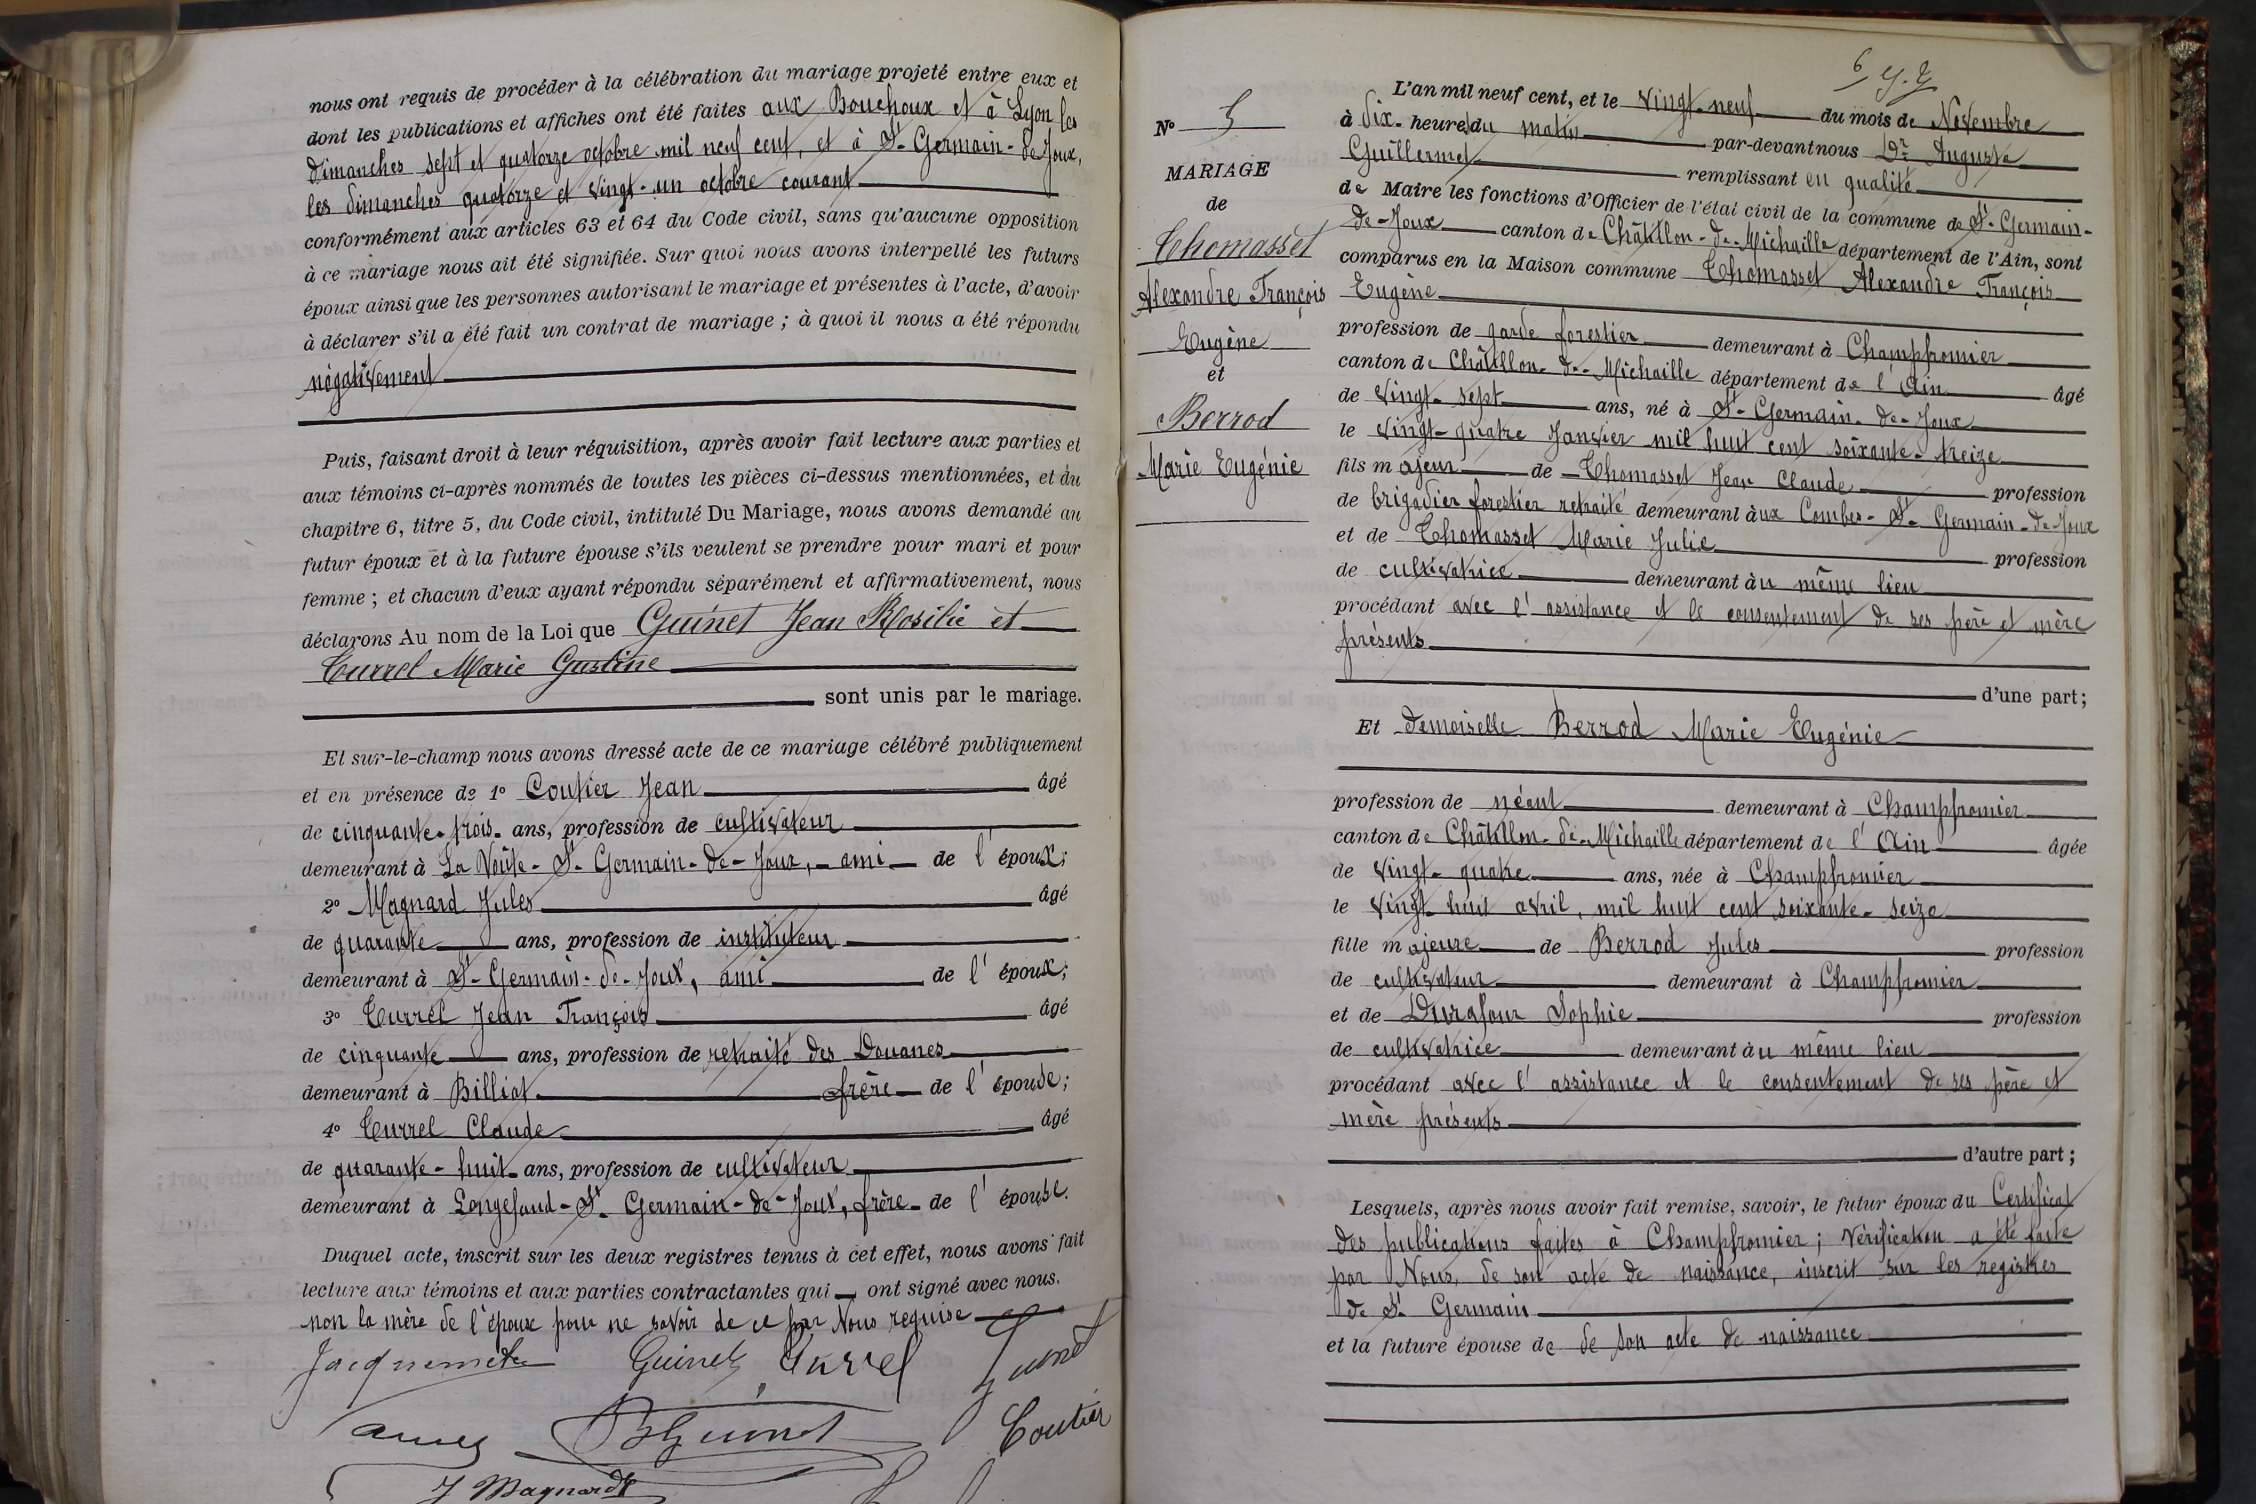 nous ont requis de procéder à la célébration du mariage projeté entre eux et
dont les publications et affiches ont été faites aux Bouchoux et à Lyon les
dimanches sept et quatorze octobre mil neuf cent, et à St Germain-de-Joux,
les dimanches quatorze et vingt-un octobre courant
conformément aux articles 63 et 64 du Code civil, sans qu'aucune opposition
à ce mariage nous ait été signifiée. Sur quoi nous avons interpellé les futurs
époux ainsi que les personnes autorisant le mariage et présentes à l'acte, d'avoir
à déclarer s'il a été fait un contrat de mariage ; à quoi il nous a été répondu
négativement
Puis, faisant droit à leur réquisition, après avoir fait lecture aux parties et
aux témoins ci-après nommés de toutes les pièces ci-dessus mentionnées, et du
chapitre 6, titre 5, du Code civil, intitulé Du Mariage, nous avons demandé au
futur époux et à la future épouse s'ils veulent se prendre pour mari et pour
femme ; et chacun d'eux ayant répondu séparément et affirmativement, nous
déclarons Au nom de la Loi que Guinet Jean Rosilie et
Turrel Marie Gustine
sont unis par le mariage.
Et sur-le-champ nous avons dressé acte de ce mariage célébré publiquement
et en présence de 1° Coutier Jean âgé
de cinquante-trois ans, profession de cultivateur
demeurant à La Voûte-St Germain-de-Joux, ami de l'époux;
2° Magnard Jules âgé
de quarante ans, profession de instituteur
demeurant à St-Germain-de-Joux, ami de l'époux;
3° Turrel Jean François âgé
de cinquante ans, profession de retraité des Douanes
demeurant à Billiat frère de l'épouse;
4° Turrel Claude âgé
de quarante-huit ans, profession de cultivateur
demeurant à Longefand-St Germain-de-Joux, frère de l'épouse.
Duquel acte, inscrit sur les deux registres tenus à cet effet, nous avons fait
lecture aux témoins et aux parties contractantes qui ont signé avec nous.
non la mère de l'époux pour ne savoir de ce par Nous requise
Guinet Turrel
Coutier
J Magnard
6 
N° 5
MARIAGE
de
Thomasset
Alexandre François
Eugène
et
Berrod
Marie Eugénie
L'an mil neuf cent, et le vingt-neuf du mois de Novembre
à dix heures du matin par-devant nous Dr Auguste
Guillermet remplissant en qualité
de Maire les fonctions d'Officier de l'état civil de la commune de St-Germain-
de-Joux canton de Châtillon-de-Michaille département de l'Ain, sont
comparus en la Maison commune Thomasset Alexandre François
Eugène
profession de garde forestier demeurant à Champfromier
canton de Châtillon-de-Michaille département de l'Ain âgé
de vingt-sept ans, né à St-Germain-de-Joux
le vingt-quatre Janvier mil huit cent soixante-treize
fils majeur de Thomasset Jean Claude profession
de brigadier forestier retraité demeurant aux Combes-St-Germain-de-Joux
et de Thomasset Marie Julie profession
de cultivatrice demeurant au même lieu
procédant avec l'assistance et le consentement de ses père et mère
présents
d'une part;
Et demoiselle Berrod Marie Eugénie
profession de néant demeurant à Champfromier
canton de Châtillon-de-Michaille département de l'Ain âgée
de vingt-quatre ans, née à Champfromier
le vingt-huit avril, mil huit cent soixante-seize
fille majeure de Berrod Jules profession
de cultivateur demeurant à Champfromier
et de Durafour Sophie profession
de cultivatrice demeurant au même lieu
procédant avec l'assistance et le consentement de ses père et
mère présents
d'autre part;
Lesquels, après nous avoir fait remise, savoir, le futur époux du Certificat
des publications faites à Champfromier; vérification a été faite
par Nous, de son acte de naissance, inscrit sur les registres
de St Germain
et la future épouse de de son acte de naissance